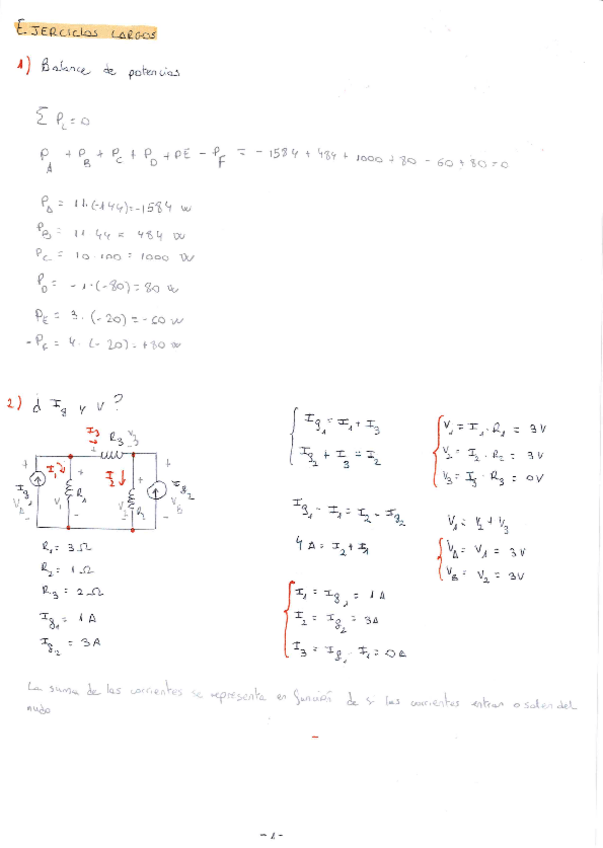 EJERCICIOS LARGOS
1) Balance de potencias
Σ P_i = 0
P_A + P_B + P_C + P_D + P_E - P_F = -1584 + 484 + 1000 + 80 - 60 + 80 = 0
P_A = 11·(-144) = -1584 W
P_B = 11·44 = 484 W
P_C = 10·100 = 1000 W
P_D = -1·(-80) = 80 W
P_E = 3·(-20) = -60 W
-P_F = 4·(-20) = +80 W
2) ¿ I_g y V?
I_3
R_3
V_3
I_g1
V_A
I_1
V_1
R_1
I_2
V_2
R_2
V_B
I_g2
R_1 = 3Ω
R_2 = 1Ω
R_3 = 2Ω
I_g1 = 1A
I_g2 = 3A
I_g1 = I_1 + I_3
I_g2 + I_3 = I_2
I_g1 - I_1 = I_2 - I_g2
4A = I_2 + I_1
I_1 = I_g1 = 1A
I_2 = I_g2 = 3A
I_3 = I_g1 - I_1 = 0A
V_1 = I_1·R_1 = 3V
V_2 = I_2·R_2 = 3V
V_3 = I_3·R_3 = 0V
V_1 = V_2 + V_3
V_A = V_1 = 3V
V_B = V_2 = 3V
La suma de las corrientes se representa en función de si las corrientes entran o salen del
nudo
-1-